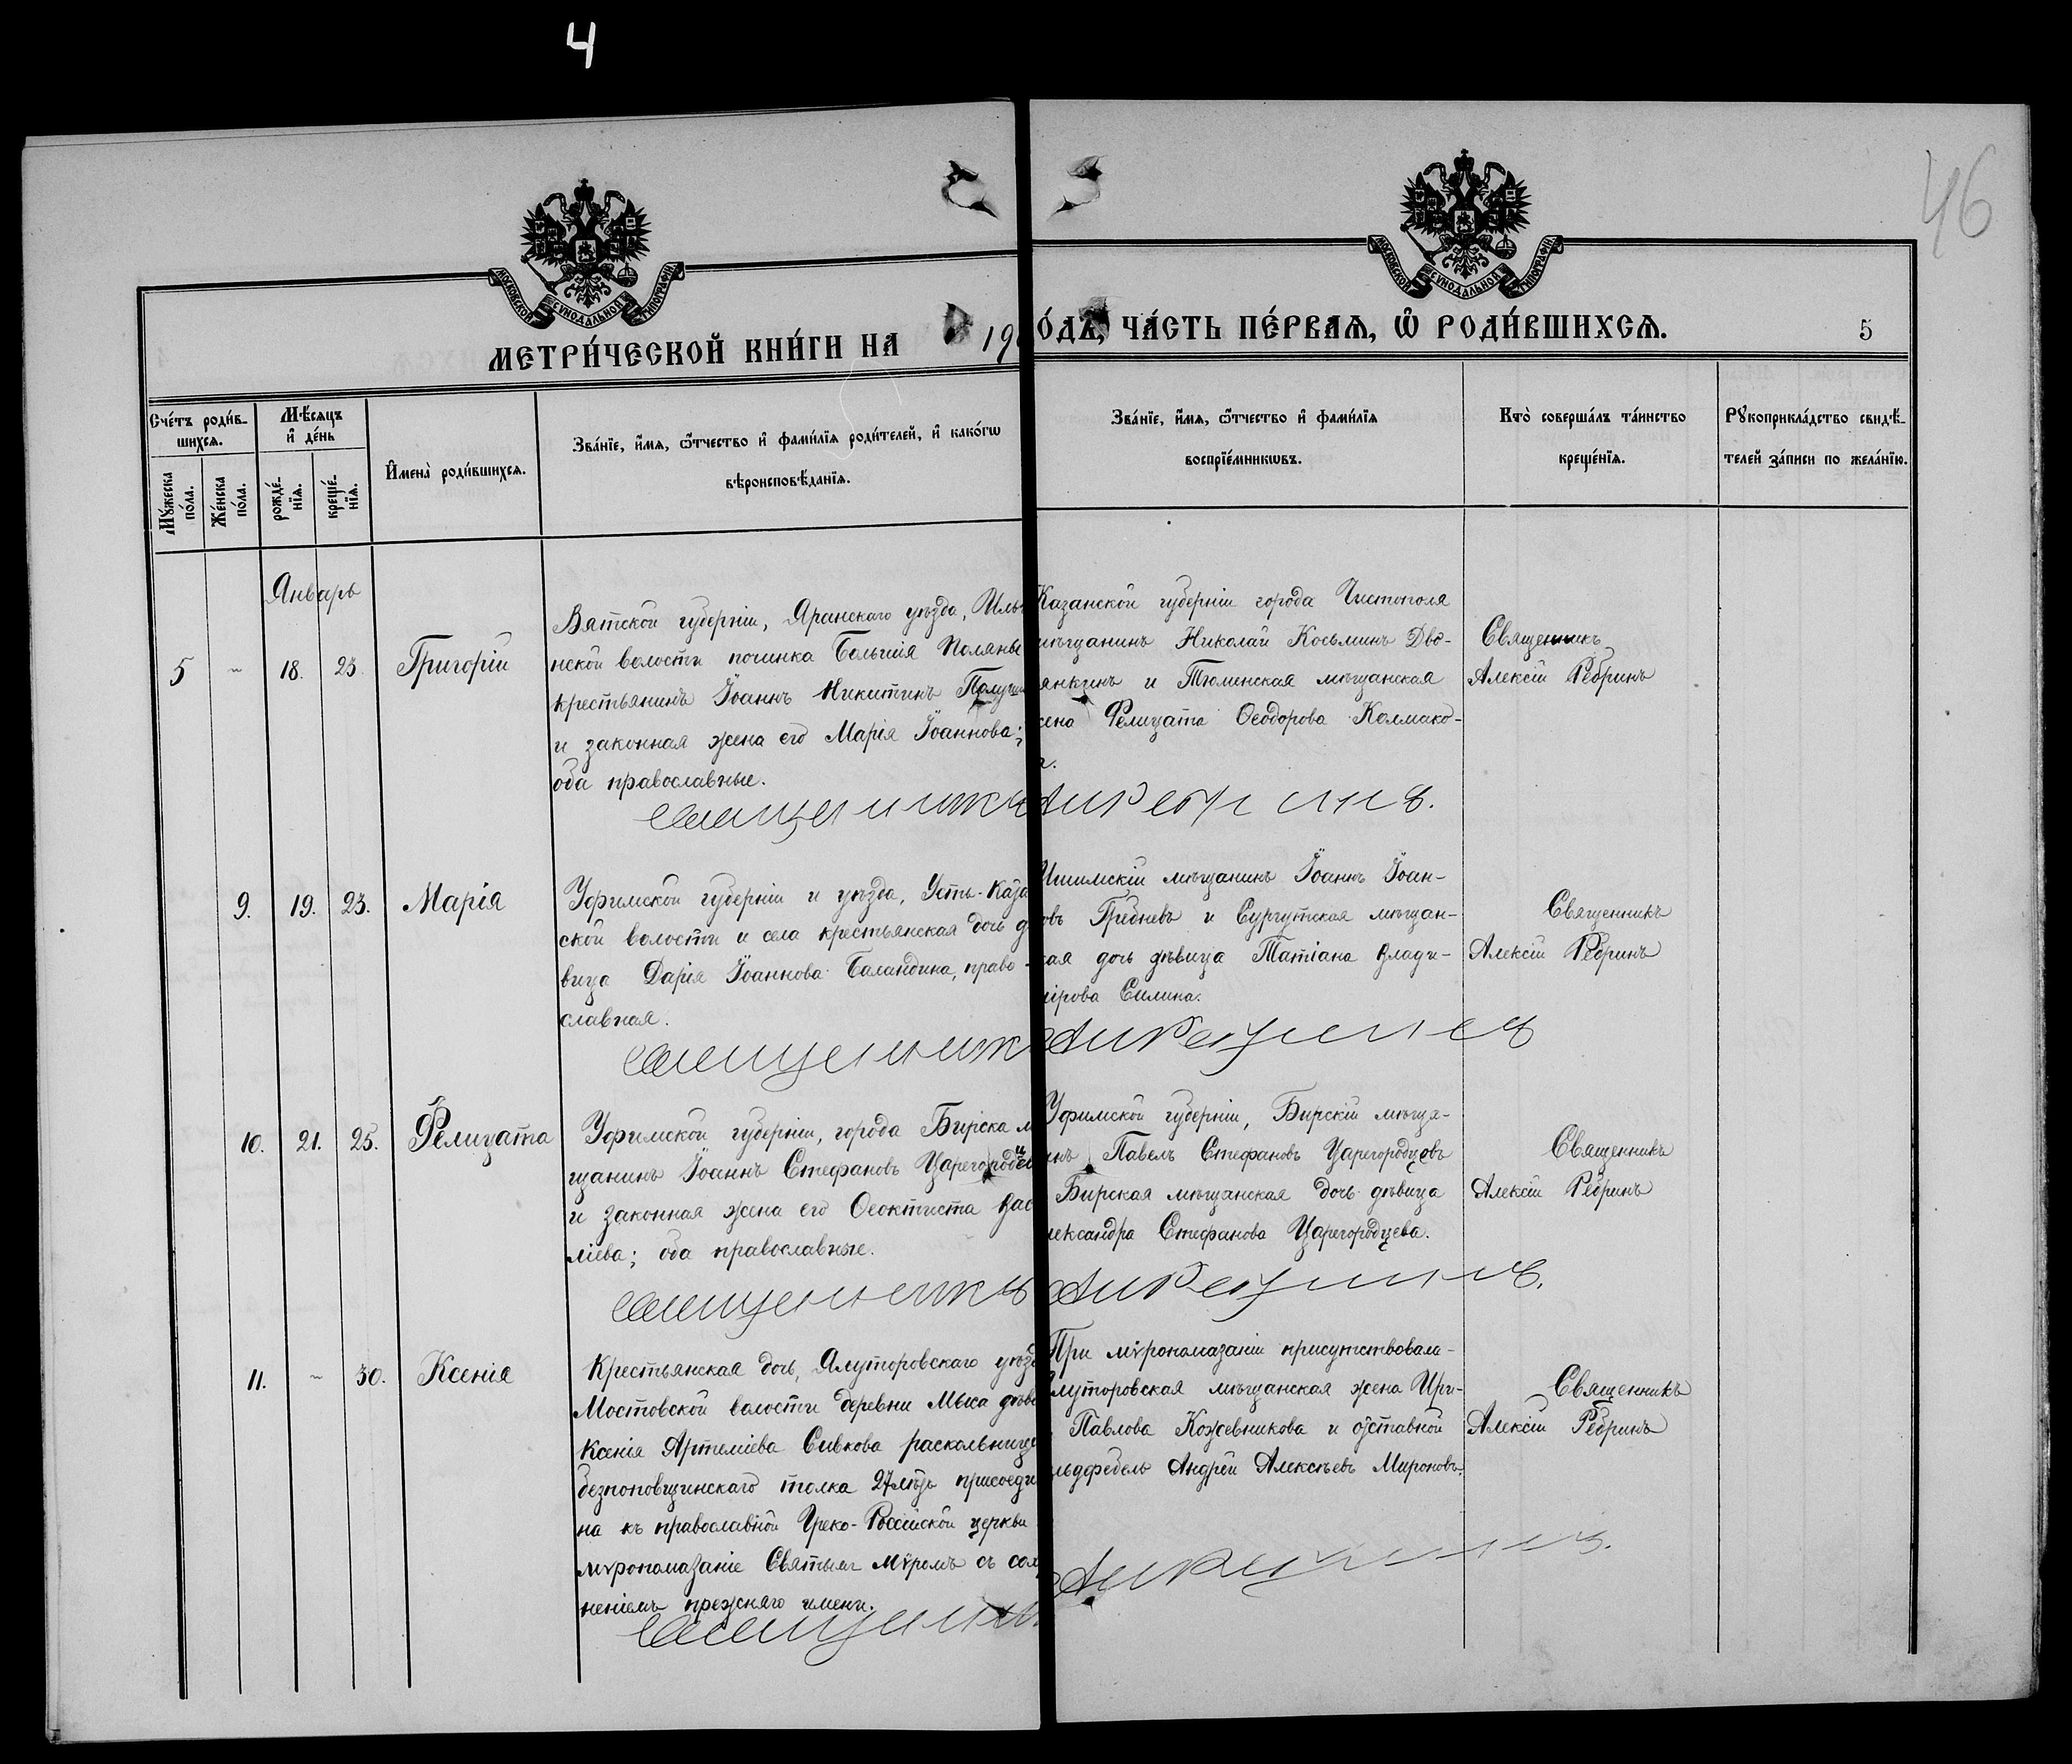 4
46
МОСКОВСКОЙ СѴНОДАЛЬНОЙ ТИПОГРАФІИ
МЕТРИ́ЧЕСКОЙ КНИ́ГИ НА 19
МОСКОВСКОЙ СѴНОДАЛЬНОЙ ТИПОГРАФІИ
О́ДЪ, ЧА́СТЬ ПЕ́РВАѦ, Ѽ РОДИ́ВШИХСѦ.
5
Сче́тъ роди́в-
шихсѧ.
Мꙋ́жеска
по́ла.
Же́нска
по́ла.
Мѣ́сѧцъ
и҆ де́нь
рожде́-
нїѧ.
креще́-
нїѧ.
И҆мена̀ роди́вшихсѧ.
Зва́нїе, и҆́мѧ, ѻ҆́тчество и҆ фами́лїѧ роди́телей, и҆ како́гѡ
вѣроисповѣ́данїѧ.
Зва́нїе, и҆́мѧ, ѻ҆́тчество и҆ фами́лїѧ
воспрїе́мникѡвъ.
Кто̀ соверша́лъ та́инство
креще́нїѧ.
Рꙋкоприкла́дство свидѣ́-
телей за́писи по жела́нїю.
Январь
5 ~ 18. 23 Григорій
Вятской губерніи, Яранскаго уѣзда, Иль
нской волости починка Большія Поляны
крестьянинъ Іоаннъ Никитинъ
и законная жена его Марія Іоаннова;
оба православные.
Казанской губерніи города Чистополя
мѣщанинъ Николай Косьминъ Дво-
янкинъ и Тюменская мѣщанская
жена Фелицата Ѳеодорова Колмако-
а.
Священникъ
Алексій Ребринъ
9. 19. 23. Марія
Уфимской губерніи и уѣзда, Усть-Каза
ской волости и села крестьянская дочь д
вица Дарія Іоаннова Баландина, право-
славная.
Ишимскій мѣщанинъ Іоаннъ Іоан-
овъ Грибневъ и Сургутская мѣщан-
кая дочь дѣвица Татіана Влади-
мірова Силина.
Священникъ
Алексій Ребринъ
10. 21. 25. Фелицата
Уфимской губерніи, города Бирска м
щанинъ Іоаннъ Стефановъ Царегородце
и законная жена его Ѳеоктиста Вас
ліева; оба православные.
Уфимской губерніи, Бирскій мѣща-
инъ Павелъ Стефановъ Царегородцевъ
Бирская мѣщанская дочь дѣвица
лександра Стефанова Царегородцева.
Священникъ
Алексій Ребринъ
11. ~ 30. Ксенія
Крестьянская дочь, Ялуторовскаго уѣзд
Мостовской волости деревни Мыса дѣв
Ксенія Артеміева Сивкова раскольница
безпоповщинскаго толка 27 лѣтъ присоеди
на къ православной Греко-Россійской церкви
мѵропомазаніе Святымъ Мѵромъ съ сох
неніемъ прежняго имени.
При мѵропомазаніи присутствовали-
луторовская мѣщанская жена Ири-
Павлова Кожевникова и отставной
льдфебель Андрей Алексѣевъ Мироновъ.
Священникъ
Алексій Ребринъ